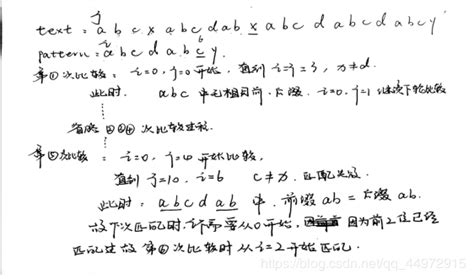 j
text = a b c x a b c d a b x a b c d a b c d a b c y
i 6
pattern = a b c d a b c y.
第①次比较: i=0, j=0 开始, 直到 i=j=3, x≠d.
此时. abc 中无相同前.后缀. i=0, j=1 继续下轮比较
省略②③④次比较过程.
比较: i=0, j=4 开始比较,
直到 j=10, i=6 c≠x. 匹配失败.
此时: abcdab 中. 前缀 ab = 后缀 ab.
故下次匹配时, i不需要从0开始, 因为前2位已经
匹配过 故第⑥次比较时从 i=2 开始匹配.
https://blog.csdn.net/qq_44972915